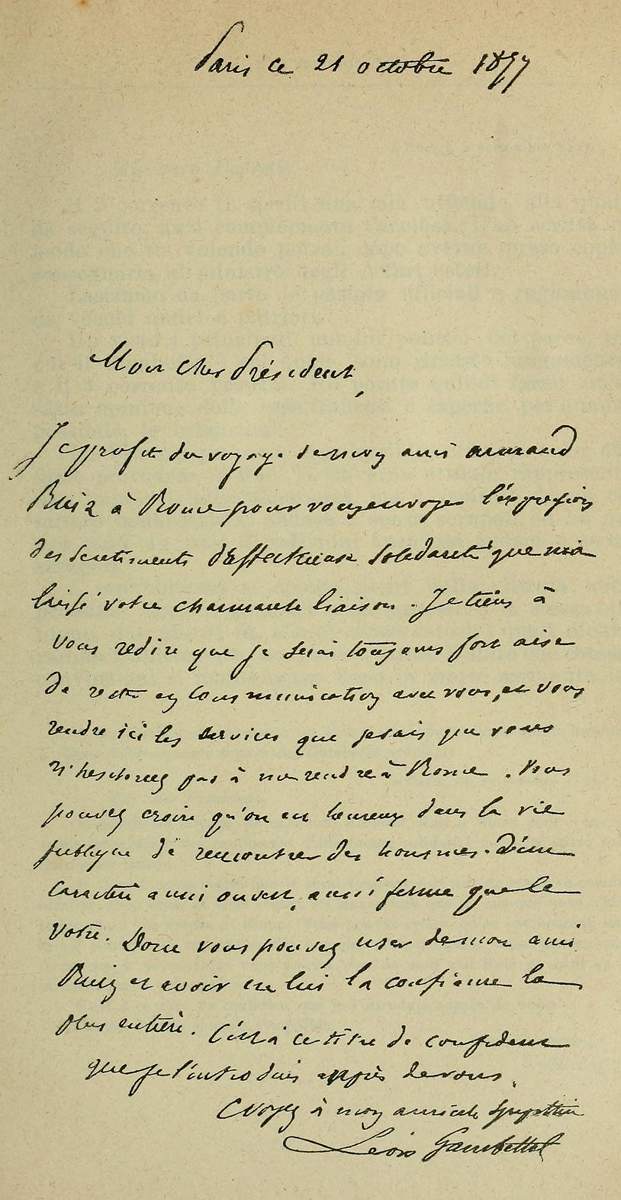 Paris ce 21 octobre 1877
Mon cher Président,
Je profite du voyage de mon ami Armand
Ruiz à Rome pour vous envoyer l'expression
des sentiments d'affectueuse solidarité que m'a
laissé votre charmante liaison. Je tiens à
vous redire que je serai toujours fort aise
de rester en communication avec vous, et vous
rendre ici les services que je sais que vous
n'hesiterez pas à me rendre à Rome. Vous
pouvez croire qu'on est heureux dans la vie
publique de rencontrer des hommes d'un
caractère aussi ouvert, aussi ferme que le
votre. Donc vous pouvez user de mon ami
Ruiz et avoir en lui la confiance la
plus entière. C'est à ce titre de confident
que je l'introduis auprès de vous.
Croyez à mon amicale sympathie
Léon Gambetta